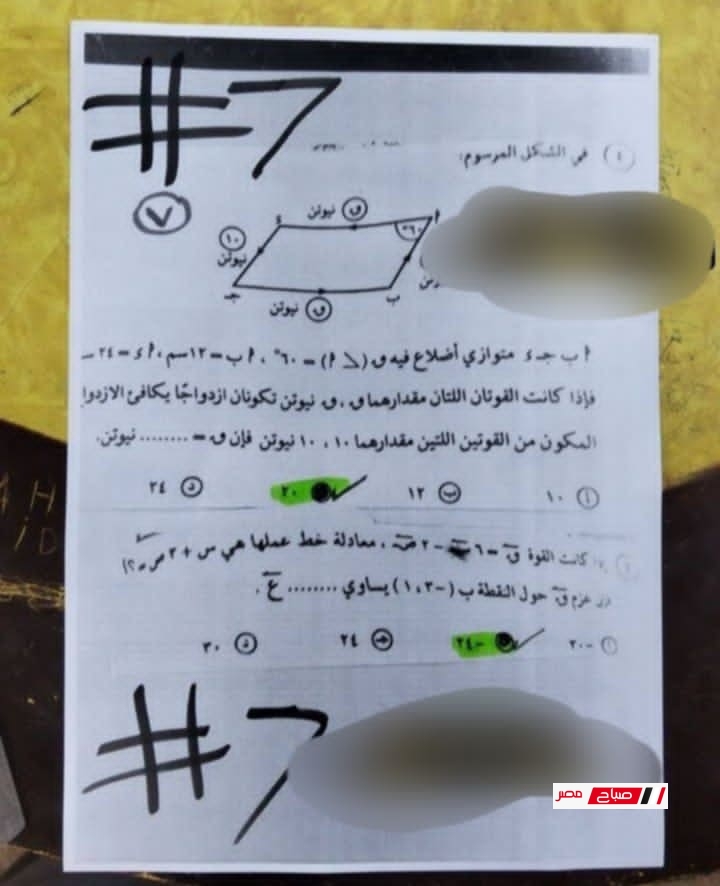 #7
٤ في الشكل المرسوم:
٧
ق نيوتن
٦٠°
أ
ء
١٠
نيوتن
جـ
ب
ق نيوتن
أ ب جـ ء متوازي أضلاع فيه ق (∠ أ) = ٦٠° ، أ ب = ١٢سم ، أ ء = ٢٤
فإذا كانت القوتان اللتان مقدارهما ق ، ق نيوتن تكونان ازدواجًا يكافئ
المكون من القوتين اللتين مقدارهما ١٠ ، ١٠ نيوتن فإن ق = ........ نيوتن.
أ ١٠ ب ١٢ ٢٠ د ٢٤
كانت القوة ق = ٦ س - ٢ ص ، معادلة خط عملها هي س + ٣ ص =
عزم ق حول النقطة ب (-٣ ، ١) يساوي ........ ع .
أ -٣٠ -٢٤ جـ ٢٤ د ٣٠
#7
صباح مصر